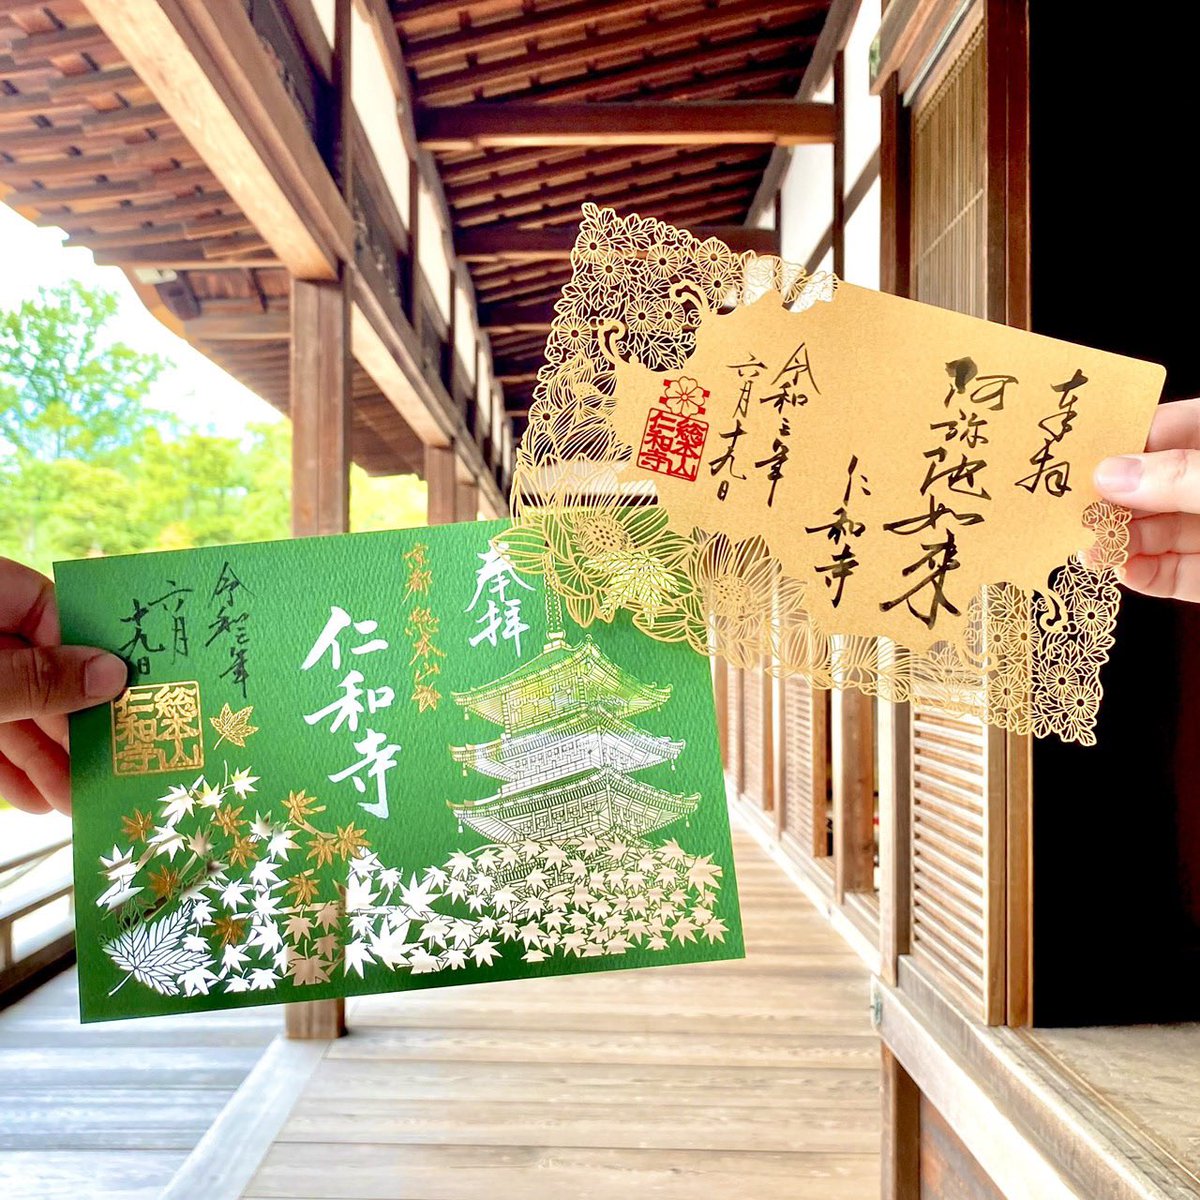 奉拝
京都 総本山
仁和寺
令和三年
六月
十九日
総本山
仁和寺
奉拝
阿弥陀如来
仁和寺
令和三年
六月十九日
総本山
仁和寺